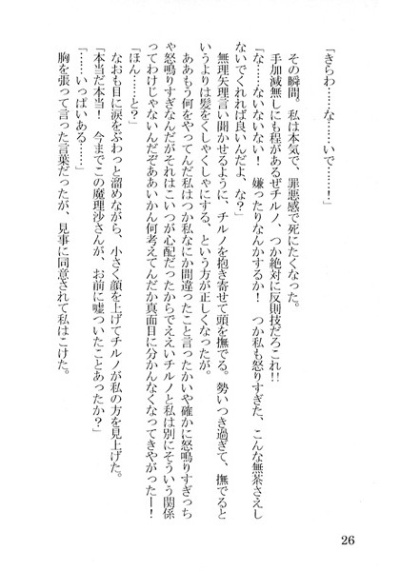 「きらわ……な……いで……！」
その瞬間。私は本気で、罪悪感で死にたくなった。
手加減無しにも程があるぜチルノ、つか絶対に反則技だろこれ!!
「な……ないないない！　嫌ったりなんかするか！　つか私も怒りすぎた、こんな無茶さえし
ないでくれれば良いんだよ、な？」
無理矢理言い聞かせるように、チルノを抱き寄せて頭を撫でる。勢いつき過ぎて、撫でると
いうよりは髪をくしゃくしゃにする、という方が正しくなったが。
ああもう何をやってんだ私はつか私なにか間違ったこと言ったかいや確かに怒鳴りすぎっち
ゃ怒鳴りすぎなんだがそれはこいつが心配だったからでええいチルノと私は別にそういう関係
ってわけじゃないんだぞああいかん何考えてんだか真面目に分かんなくなってきやがったー！
「ほん……と？」
なおも目に涙をぶわっと溜めながら、小さく顔を上げてチルノが私の方を見上げた。
「本当だ本当！　今までこの魔理沙さんが、お前に嘘ついたことあったか？」
「……いっぱいある……」
胸を張って言った言葉だったが、見事に同意されて私はこけた。
26